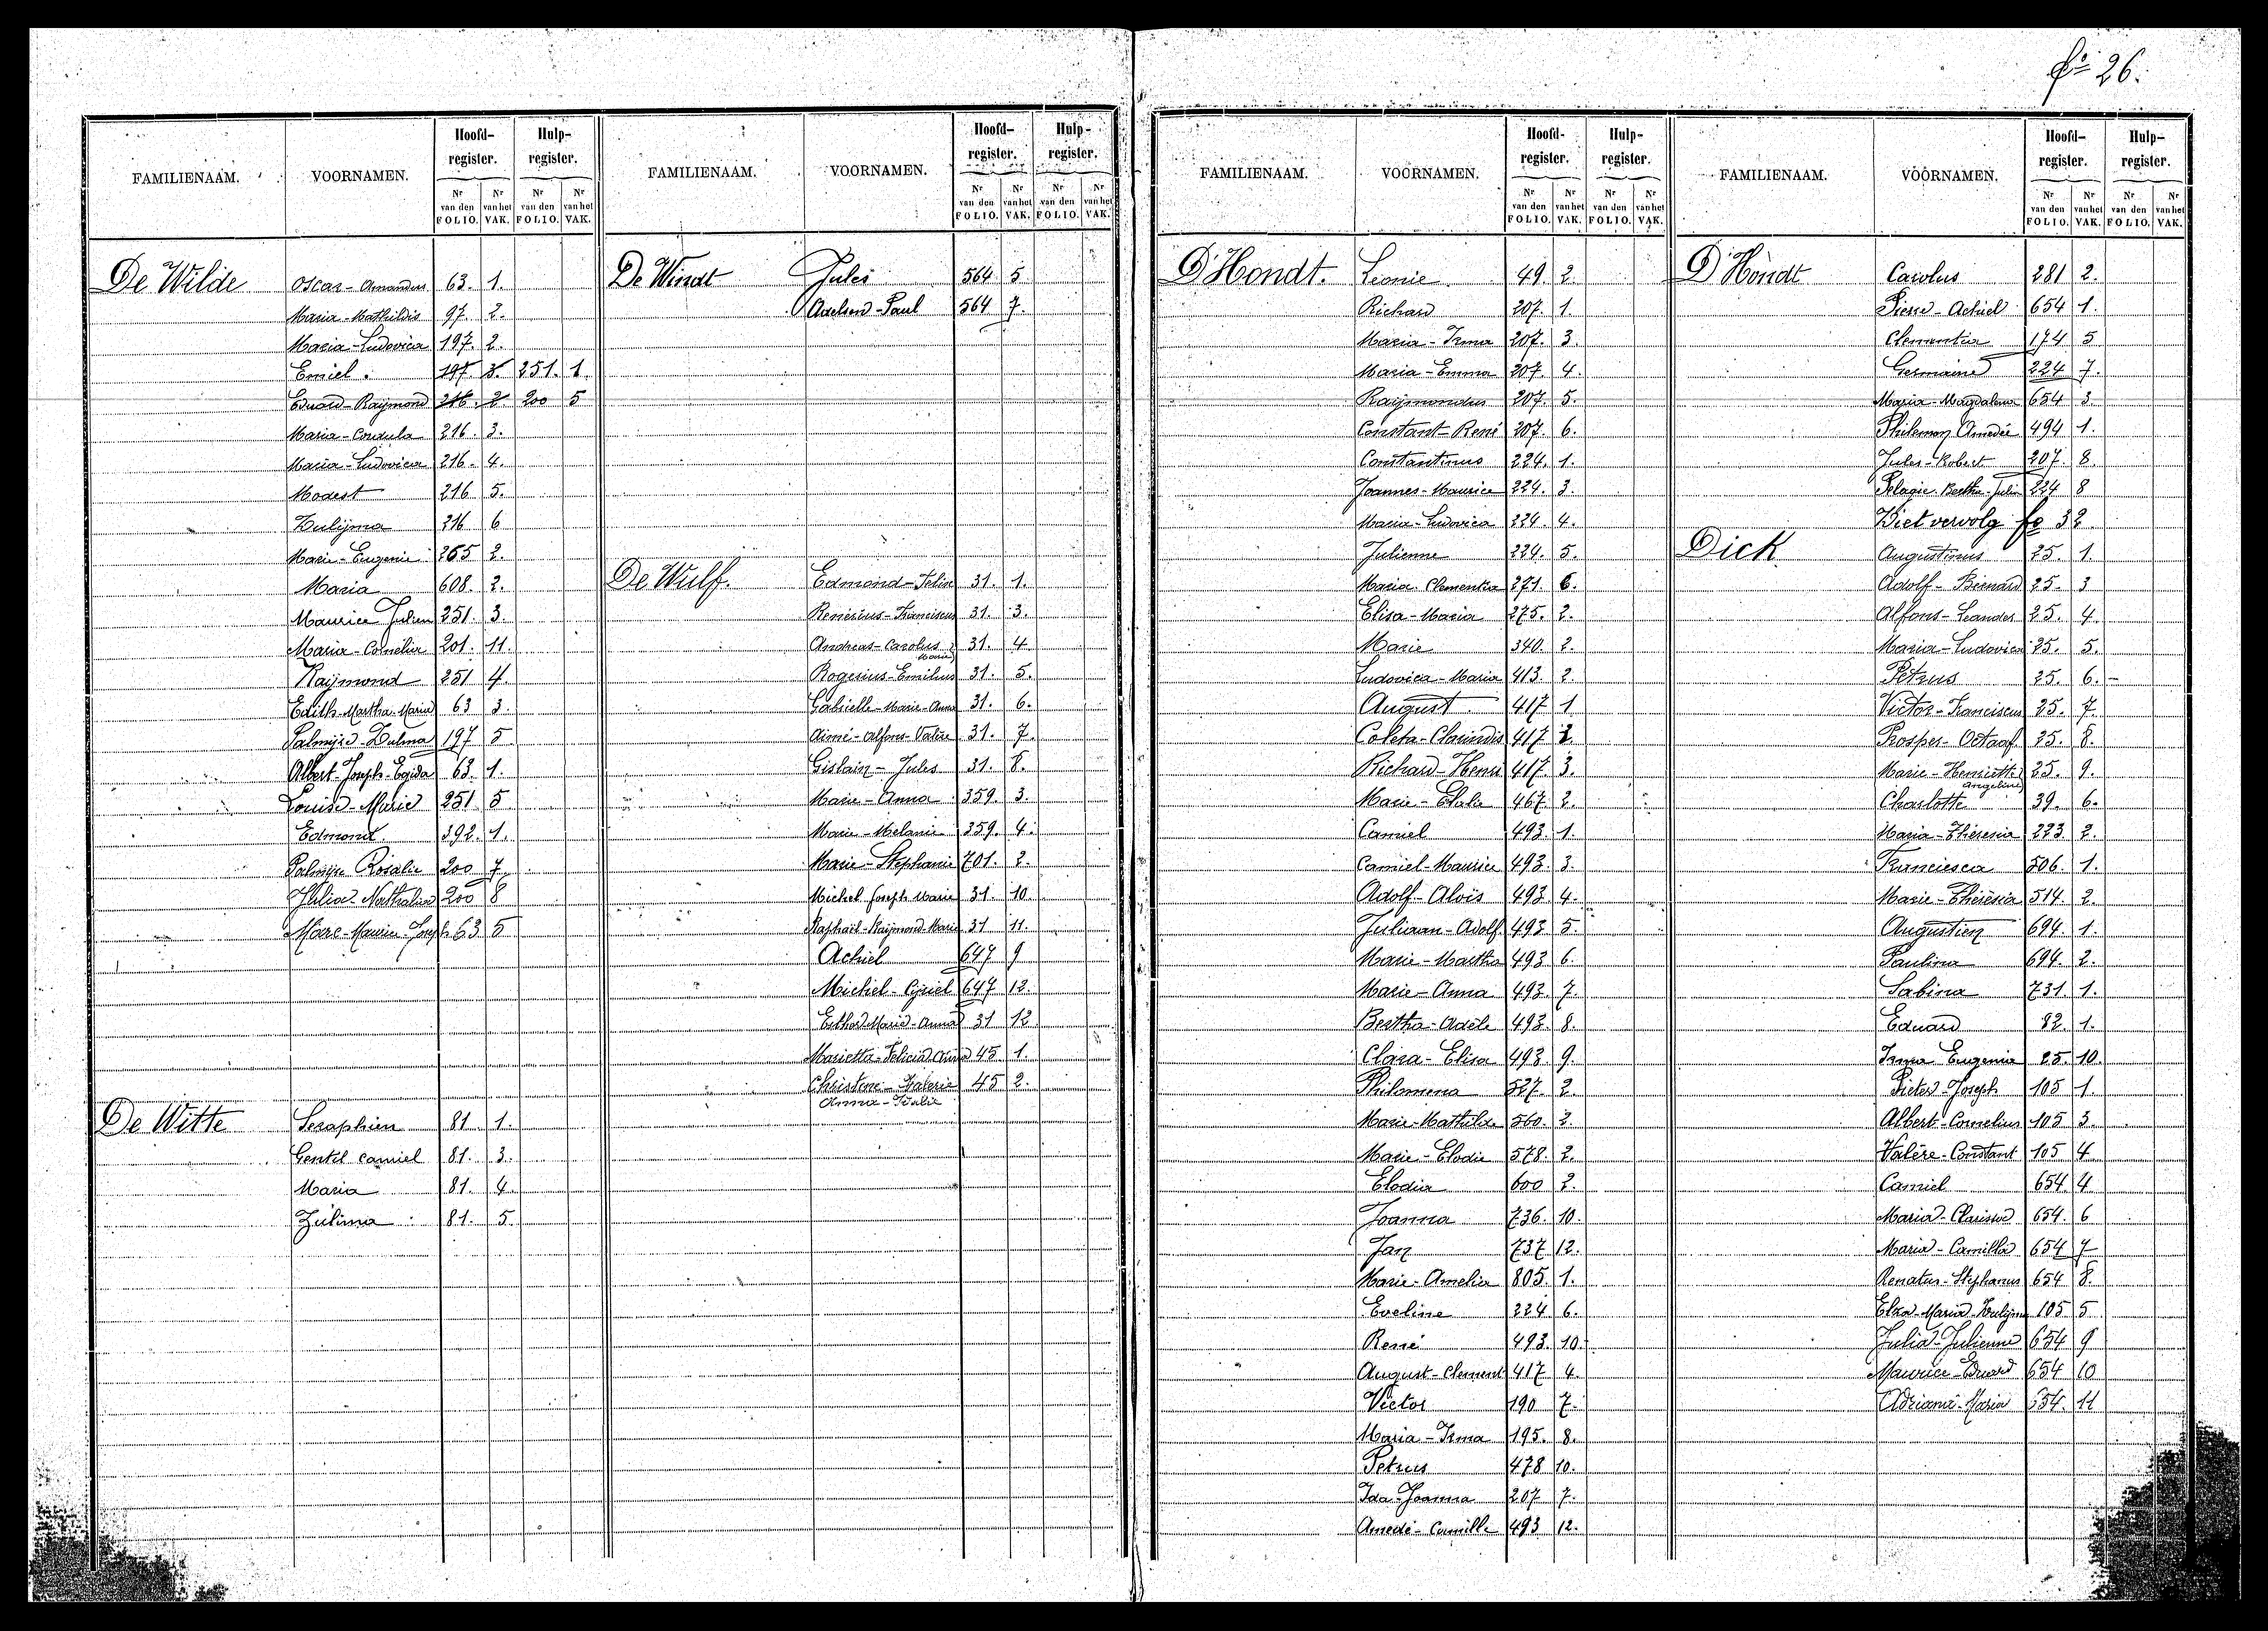 fo 26.
FAMILIENAAM. VOORNAMEN. Hoofd-register. Hulp-register.
Nr van den FOLIO. Nr van het VAK. Nr van den FOLIO. Nr van het VAK.
De Wilde Oscar-Amandus 63. 1.
Maria-Mathildis 97. 2.
Maria-Ludovica 197. 2.
Emiel. 197. 3. 251. 1
Eduard-Raymond 216. 2 200 5
Maria-Cordula 216. 3.
Maria-Ludovica 216. 4.
Modest 216 5.
Zulijma 216 6
Marie-Eugenie 265 2.
Maria 608. 2.
Maurice Julien 251. 3.
Maria-Cornelia 201. 11.
Raymond 251 4.
Edith-Martha-Maria 63 3.
Palmyre-Zulma 197 5
Albert-Joseph-Egida 63. 1.
Louise-Marie 251 5
Edmond 392. 1.
Palmyre Rosalie 200 7.
Nathalia 200 8
Marc-Maurice-Joseph 63 5
De Witte Seraphien 81 1.
Gentil Camiel 81. 3.
Maria 81. 4.
Zulima 81. 5.
FAMILIENAAM. VOORNAMEN. Hoofd-register. Hulp-register.
Nr van den FOLIO. Nr van het VAK. Nr van den FOLIO. Nr van het VAK.
De Windt Jules 564 5
Adelson-Paul 564 7.
De Wulf. Edmond-Felix 31. 1.
Remerius-Franciscus 31. 3.
Andreas-Carolus Marie 31. 4
Rogerius-Emilius 31. 5.
Gabrielle-Marie-Anna 31. 6.
Aimé-Alfons-Valère 31. 7.
Gislain-Jules 31. 8.
Marie-Anna 359. 3.
Marie-Melanie 359. 4.
Marie-Stephanie 701. 2.
Michel Joseph Marie 31. 10
Raphaël-Raymond-Marie 31 11.
Achiel 647 9
Michiel-Cyriel 647 12.
Esther Marie-Anna 31 12
Marietta-Felicia Anna 45 1.
Christine-Valerie 45 2.
Anna-Italie
FAMILIENAAM. VOORNAMEN. Hoofd-register. Hulp-register.
Nr van den FOLIO. Nr van het VAK. Nr van den FOLIO. Nr van het VAK.
D'Hondt. Leonie. 49. 2.
Richard 207. 1.
Maria-Irma 207. 3.
Maria-Emma 207. 4.
Raymondus 207. 5.
Constant-René 207. 6.
Constantinus 224. 1.
Joannes-Maurice 224. 3.
Maria-Ludovica 224. 4.
Julienne 224. 5.
Maria Clementia 271. 6.
Elisa-Maria 275. 2.
Marie 340. 2.
Ludovica-Maria 413. 2.
August 417 1.
Coleta-Clarindis 417 2.
Richard-Henri 417. 3.
Marie-Elalie 467. 2.
Camiel 493. 1.
Camiel-Maurice 493. 3.
Adolf-Aloïs 493 4.
Juliaan-Adolf 493. 5.
Marie-Martha 493 6.
Marie-Anna 493. 7.
Bertha-Adèle 493. 8.
Clara-Elisa 493. 9.
Philomena 527. 2.
Marie-Mathilde 560. 2.
Marie-Elodie 578. 2.
Elodia 600 2.
Joanna 736. 10.
Jan 737 12.
Marie-Amelia 805. 1.
Eveline 224 6.
René 493. 10.
August-Clement 417 4.
Victor 190 7.
Maria-Irma 195. 8.
Petrus 478 10.
Ida-Joanna 207 7.
Amedé-Camille 493 12.
FAMILIENAAM. VOORNAMEN. Hoofd-register. Hulp-register.
Nr van den FOLIO. Nr van het VAK. Nr van den FOLIO. Nr van het VAK.
D'Hondt Carolus 281 2.
Pierre-Achiel 654 1.
Clementia 174 5
Germaine 224 7.
Maria-Magdalena 654 3.
Philemon Amedée 494 1.
Jules-Robert 207. 8.
Pelagie-Bertha-Julia 224 8
Ziet vervolg fo 32
Dick Augustinus 25. 1.
Adolf-Bernard 25. 3
Alfons-Leander 25. 4.
Maria-Ludovica 25. 5.
Petrus 25. 6.
Victor-Franciscus 25. 7.
Prosper-Octaaf 25. 8.
Marie-Henriette Angeline 25. 9.
Charlotte 39. 6.
Maria-Theresia 223. 2.
Francisca 506. 1.
Marie-Theresia 514. 2.
Augustien 694. 1.
Paulina 694. 2.
Sabina 731. 1.
Eduard 82. 1.
Irma Eugenia 25. 10.
Pieter-Joseph 105 1.
Albert-Cornelius 105 3.
Valère-Constant 105 4
Camiel 654. 4
Maria-Clarisse 654. 6
Maria-Camilla 654 7
Renatus-Stephanus 654 8.
Elza-Maria-Zulijma 105 5
Julia-Julienne 654 9
Maurice-Eduard 654 10
Adriana-Maria 654. 11